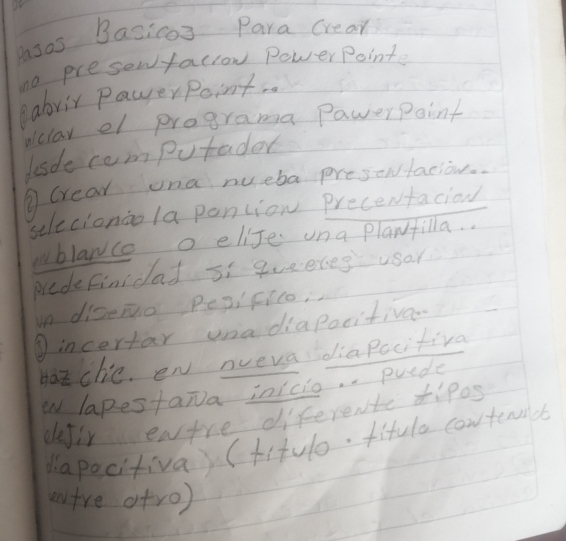 Pasos Basicos Para Crear
una presentacion PowerPoint.
① abrir PawerPoint..
iniciar el programa PawerPoint
desde computador
② Crear una nueba presentacion..
selecionão la pontion Precentacion
en blanco o elije una plantilla..
predefinidad si queeres usar
un diseño pesifico..
③ incertar una diapocitiva..
Haz clic. en nueva diapocitiva
en lapestaña inicio.. puede
elejir entre diferente tipos
diapocitiva) (titulo. titulo contenid
entre otro)